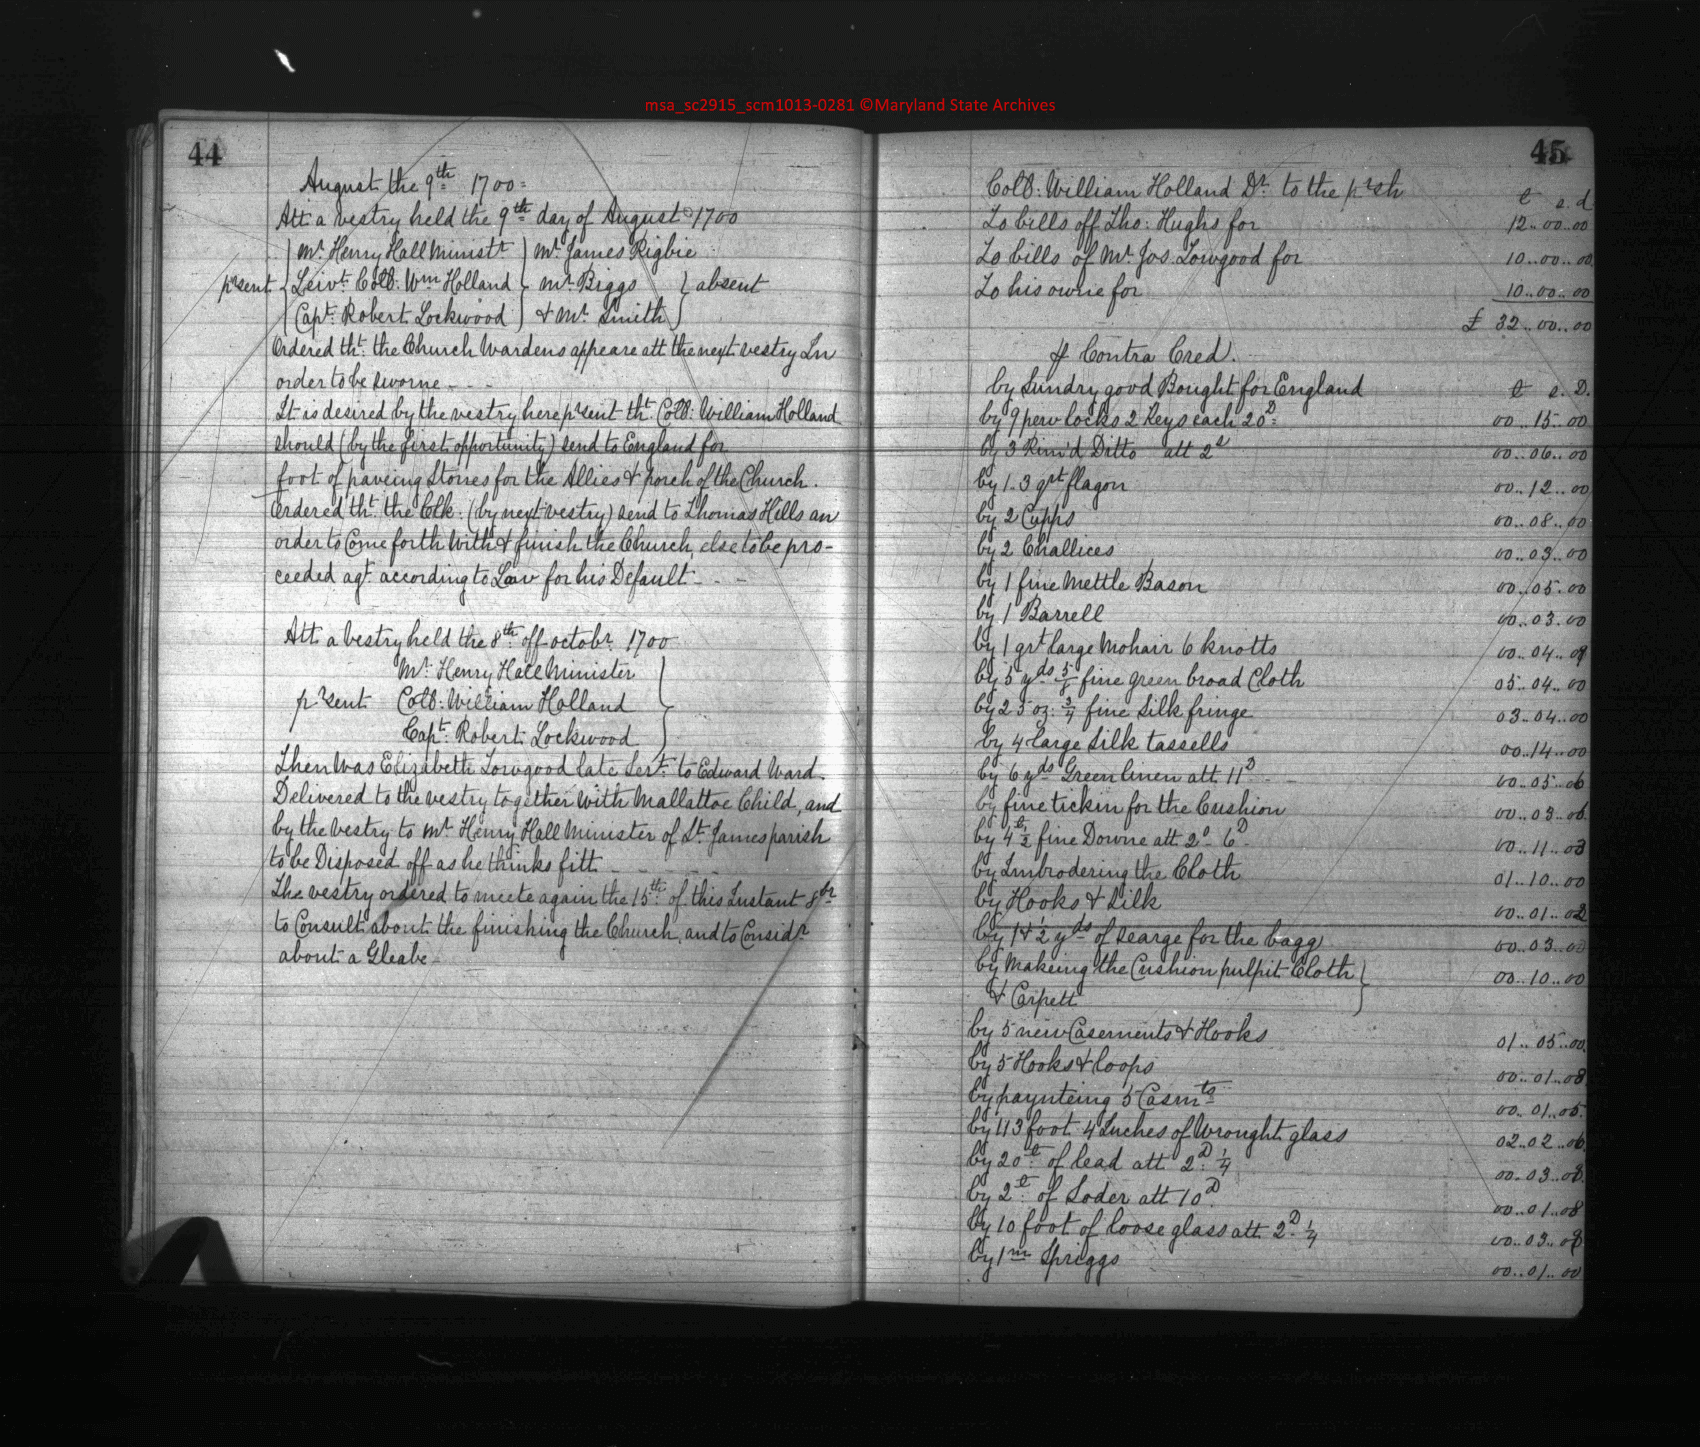 msa_sc2915_scm1013-0281 ©Maryland State Archives
44
August the 9th 1700=
Att a vestry held the 9th day of August 1700
Mr Henry Hall Ministr } Mr James Rigbie
prsent { Leivt Coll: Wm Holland } Mr Biggs } absent
Capt Robert Lockwood } & Mr Smith }
Ordered tht the Church Wardens appeare att the next vestry In
order to be sworne - - -
It is desired by the vestry here prsent tht Coll: William Holland
should (by the first opportunity) send to England for
foot of paveing Stones for the Allies & porch of the Church.
Ordered tht the Clk. (by next vestry) send to Thomas Hills an
order to Come forth With & finish the Church, else to be pro-
ceeded agt according to Law for his Default - - -
Att a vestry held the 8th off octobr 1700
Mr Henry Hall Minister
prsent Coll: William Holland
Capt Robert Lockwood
Then Was Elizabeth Towgood late Sert to Edward Ward.
Delivered to the vestry together With Mallattoe Child, and
by the vestry to Mr Henry Hall Minister of St James parish
to be Disposed off as he thinks fitt - - - -
The vestry ordered to meete again the 15th of this Instant 8br
to Consult about the finishing the Church, and to Considr
about a Gleabe -
45
Coll: William Holland Dr to the prsh
£ s. d.
To bills off Tho: Hughs for 12..00..00
To bills of Mr Jos. Towgood for 10..00..00
To his owne for 10..00..00
£ 32..00..00
Contra Cred.
by Sundry good Bought for England £ s. D.
by 9 pew locks 2 Keys each 20D 00..15..00
by 3 Rim'd Ditto att 2s 00..06..00
by 1-3 qrt flagon 00..12..00
by 2 Cupps 00..08..00
by 2 Challices 00..03..00
by 1 fine Mettle Bason 00..05..00
by 1 Barrell 00..03..00
by 1 grt large Mohair 6 knotts 00..04..
by 5 yds 5/8 fine green broad Cloth 05..04..00
by 25 oz: 3/4 fine Silk fringe 03..04..00
by 4 large Silk tassells 00..14..00
by 6 yds Green linen att 11D 00..05..06
by fine tickin for the Cushion 00..03..06
by 4 1/2 fine Downe att 2s 6D 00..11..03
by Imbrodering the Cloth 01..10..00
by Hooks & Silk 00..01..02
by 1 & 1/2 yds of searge for the bagg 00..03..00
by Makeing the Cushion pulpit Cloth } 00..10..00
& Carpett
by 5 new Casements & Hooks 01..05..00
by 5 Hooks & loops 00..01..08
by paynteing 5 Casmts 00..01..05
by 113 foot 4 Inches of Wrought glass 02..02..06
by 20 of lead att 2D 1/4 00..03..
by 2 of Soder att 10D 00..01..08
by 10 foot of loose glass att 2D 1/4 00..03..
by 1m Spriggs 00..01..00